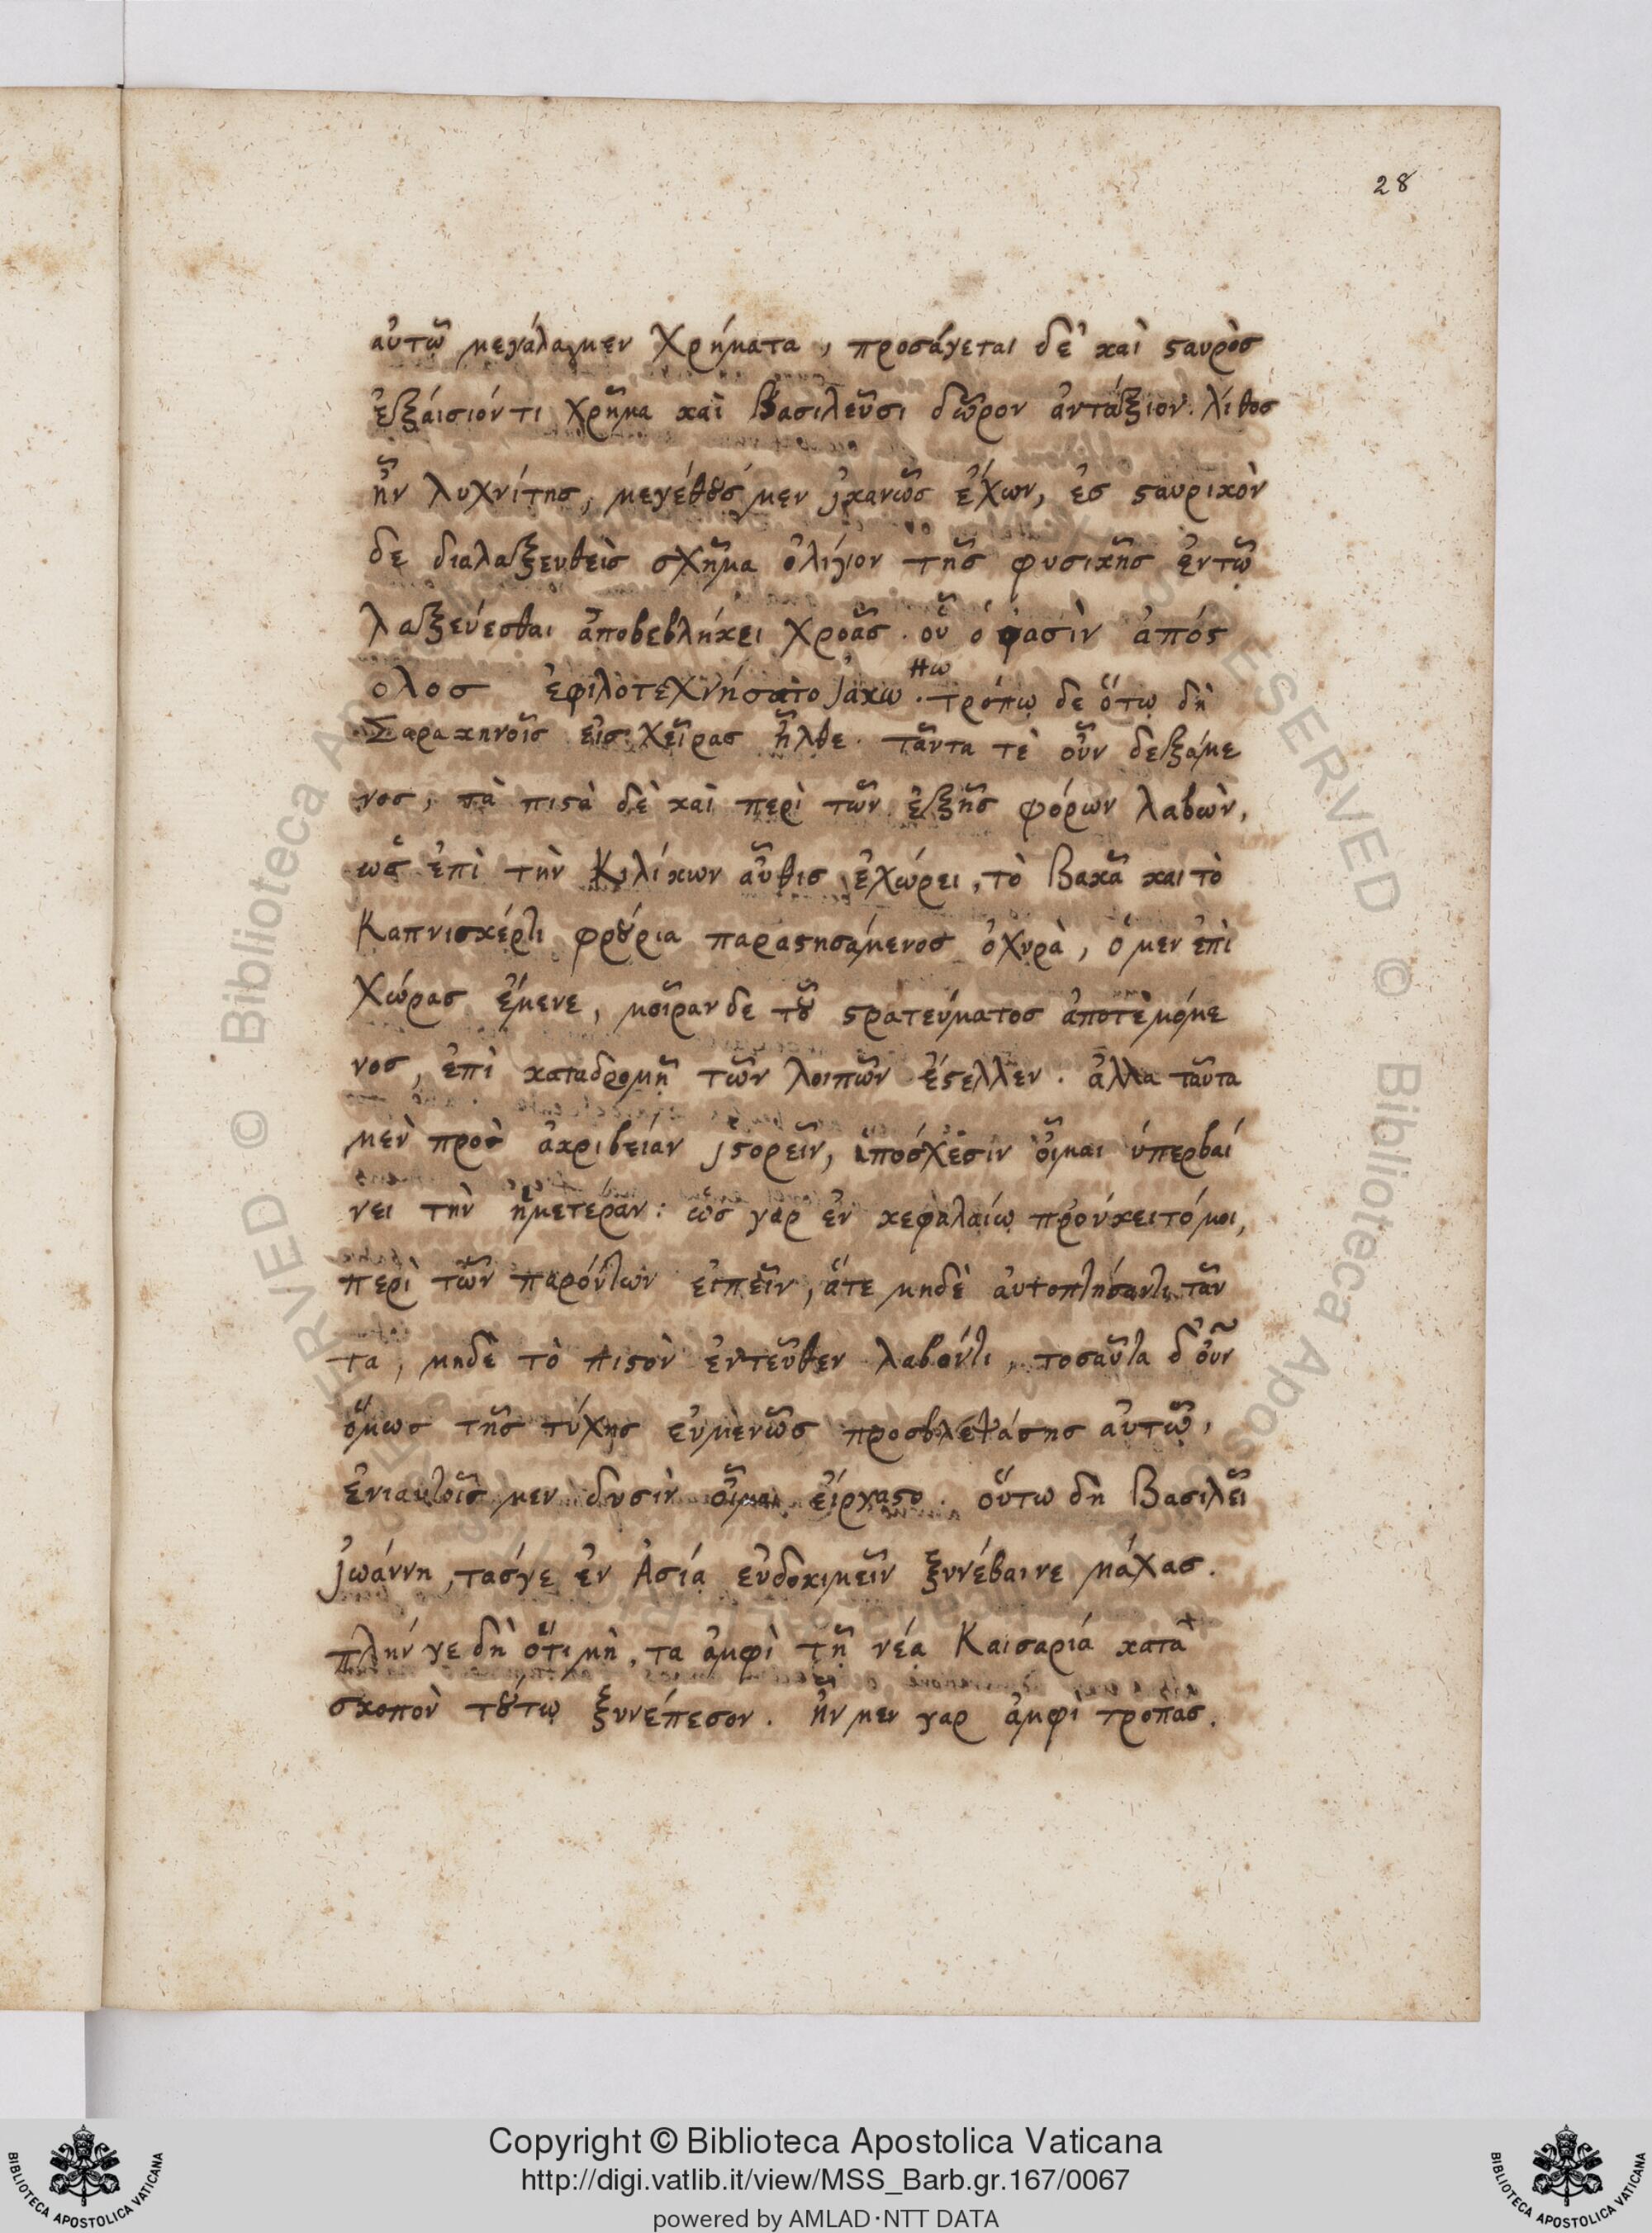 28
αὐτῷ μεγάλα μεν χρήματα, προσάγεται δὲ καὶ ϛαυρὸσ
ἐξάισιόν τι χρῆμα καὶ Βασιλεῦσι δῶρον ἀντάξιον. λίθοσ
ἦν λυχνίτησ, μεγέθȣσ μεν ἱκανῶσ ἔχων, ἐσ ϛαυρικὸν
δε διαλαξευθεὶσ σχῆμα ὀλίγον τῆσ φυσικῆσ ἐντῷ
λαξεύεσθαι ἀποβεβλήκει χροᾶσ. οὗ ὁ φασὶν ἀπόϛ
ολοσ ἐφιλοτεχνήσατο Ἰακω . τρόπῳ δε ὅτῳ δὴ
Σαρακηνοῖσ εἰσ χεῖρασ ἦλθε. ταῦτα τὲ οὖν δεξάμε
νοσ, τὰ πιϛὰ δὲ καὶ περὶ τῶν ἑξῆσ φόρων λαβὼν,
ωσ ἐπὶ τὴν Κιλίκων αὖθισ ἐχώρει, τὸ Βακᾶ και τὸ
Καπνισκέρτι φρȣ́ρια παραϛησάμενοσ ὀχυρὰ, ὁ μεν ἐπὶ
χώρασ ἔμενε, μοῖραν δε τȣ͂ ϛρατεύματοσ ἀποτεμόμε
νοσ, ἐπὶ καταδρομῇ τῶν λοιπῶν ἔϛελλεν. ἀλλα ταῦτα
μὲν προσ ἀκριβείαν ἱϛορεῖν, ὑπόσχεσιν οἶμαι ὑπερβαί
νει τὴν ἡμετέραν: ὡσ γαρ ἐν κεφαλαίῳ προύκειτό μοι,
περὶ τῶν παρόντων εἰπεῖν, ἅτε μηδὲ αυτοπτήσαντι ταῦ
τα, μηδὲ τὸ πιϛὸν ἐντεῦθεν λαβόντι, τοσαῦτα δ' οὖν
ὅμωσ τῆσ τύχησ εὐμενῶσ προσβλεψάσησ αὐτῷ,
ἐνιαυτοῖσ μεν δυσὶν οἶμαι εἴργαϛο. οὕτω δὴ Βασιλεῖ
Ἰωάννῃ, τάσγε ἐν Ἀσίᾳ εὐδοκιμεῖν ξυνέβαινε μάχασ.
πλήν γε δὴ ὅτι μὴ, τα ἀμφὶ τῇ νέᾳ Καισαριᾴ κατα
σκοπὸν τȣ́τῳ ξυνέπεσον. ἦν μεν γαρ ἀμφὶ τροπὰσ.
Copyright © Biblioteca Apostolica Vaticana
http://digi.vatlib.it/view/MSS_Barb.gr.167/0067
powered by AMLAD·NTT DATA